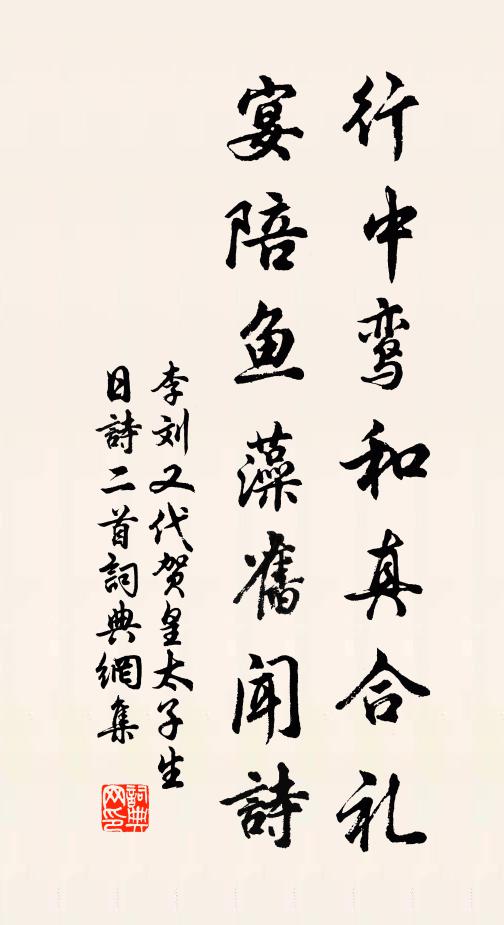 行中鸾和真合礼
宴陪鱼藻舊闻詩
李刘又代贺皇太子生
日詩二首詞典網集
詞典
网印